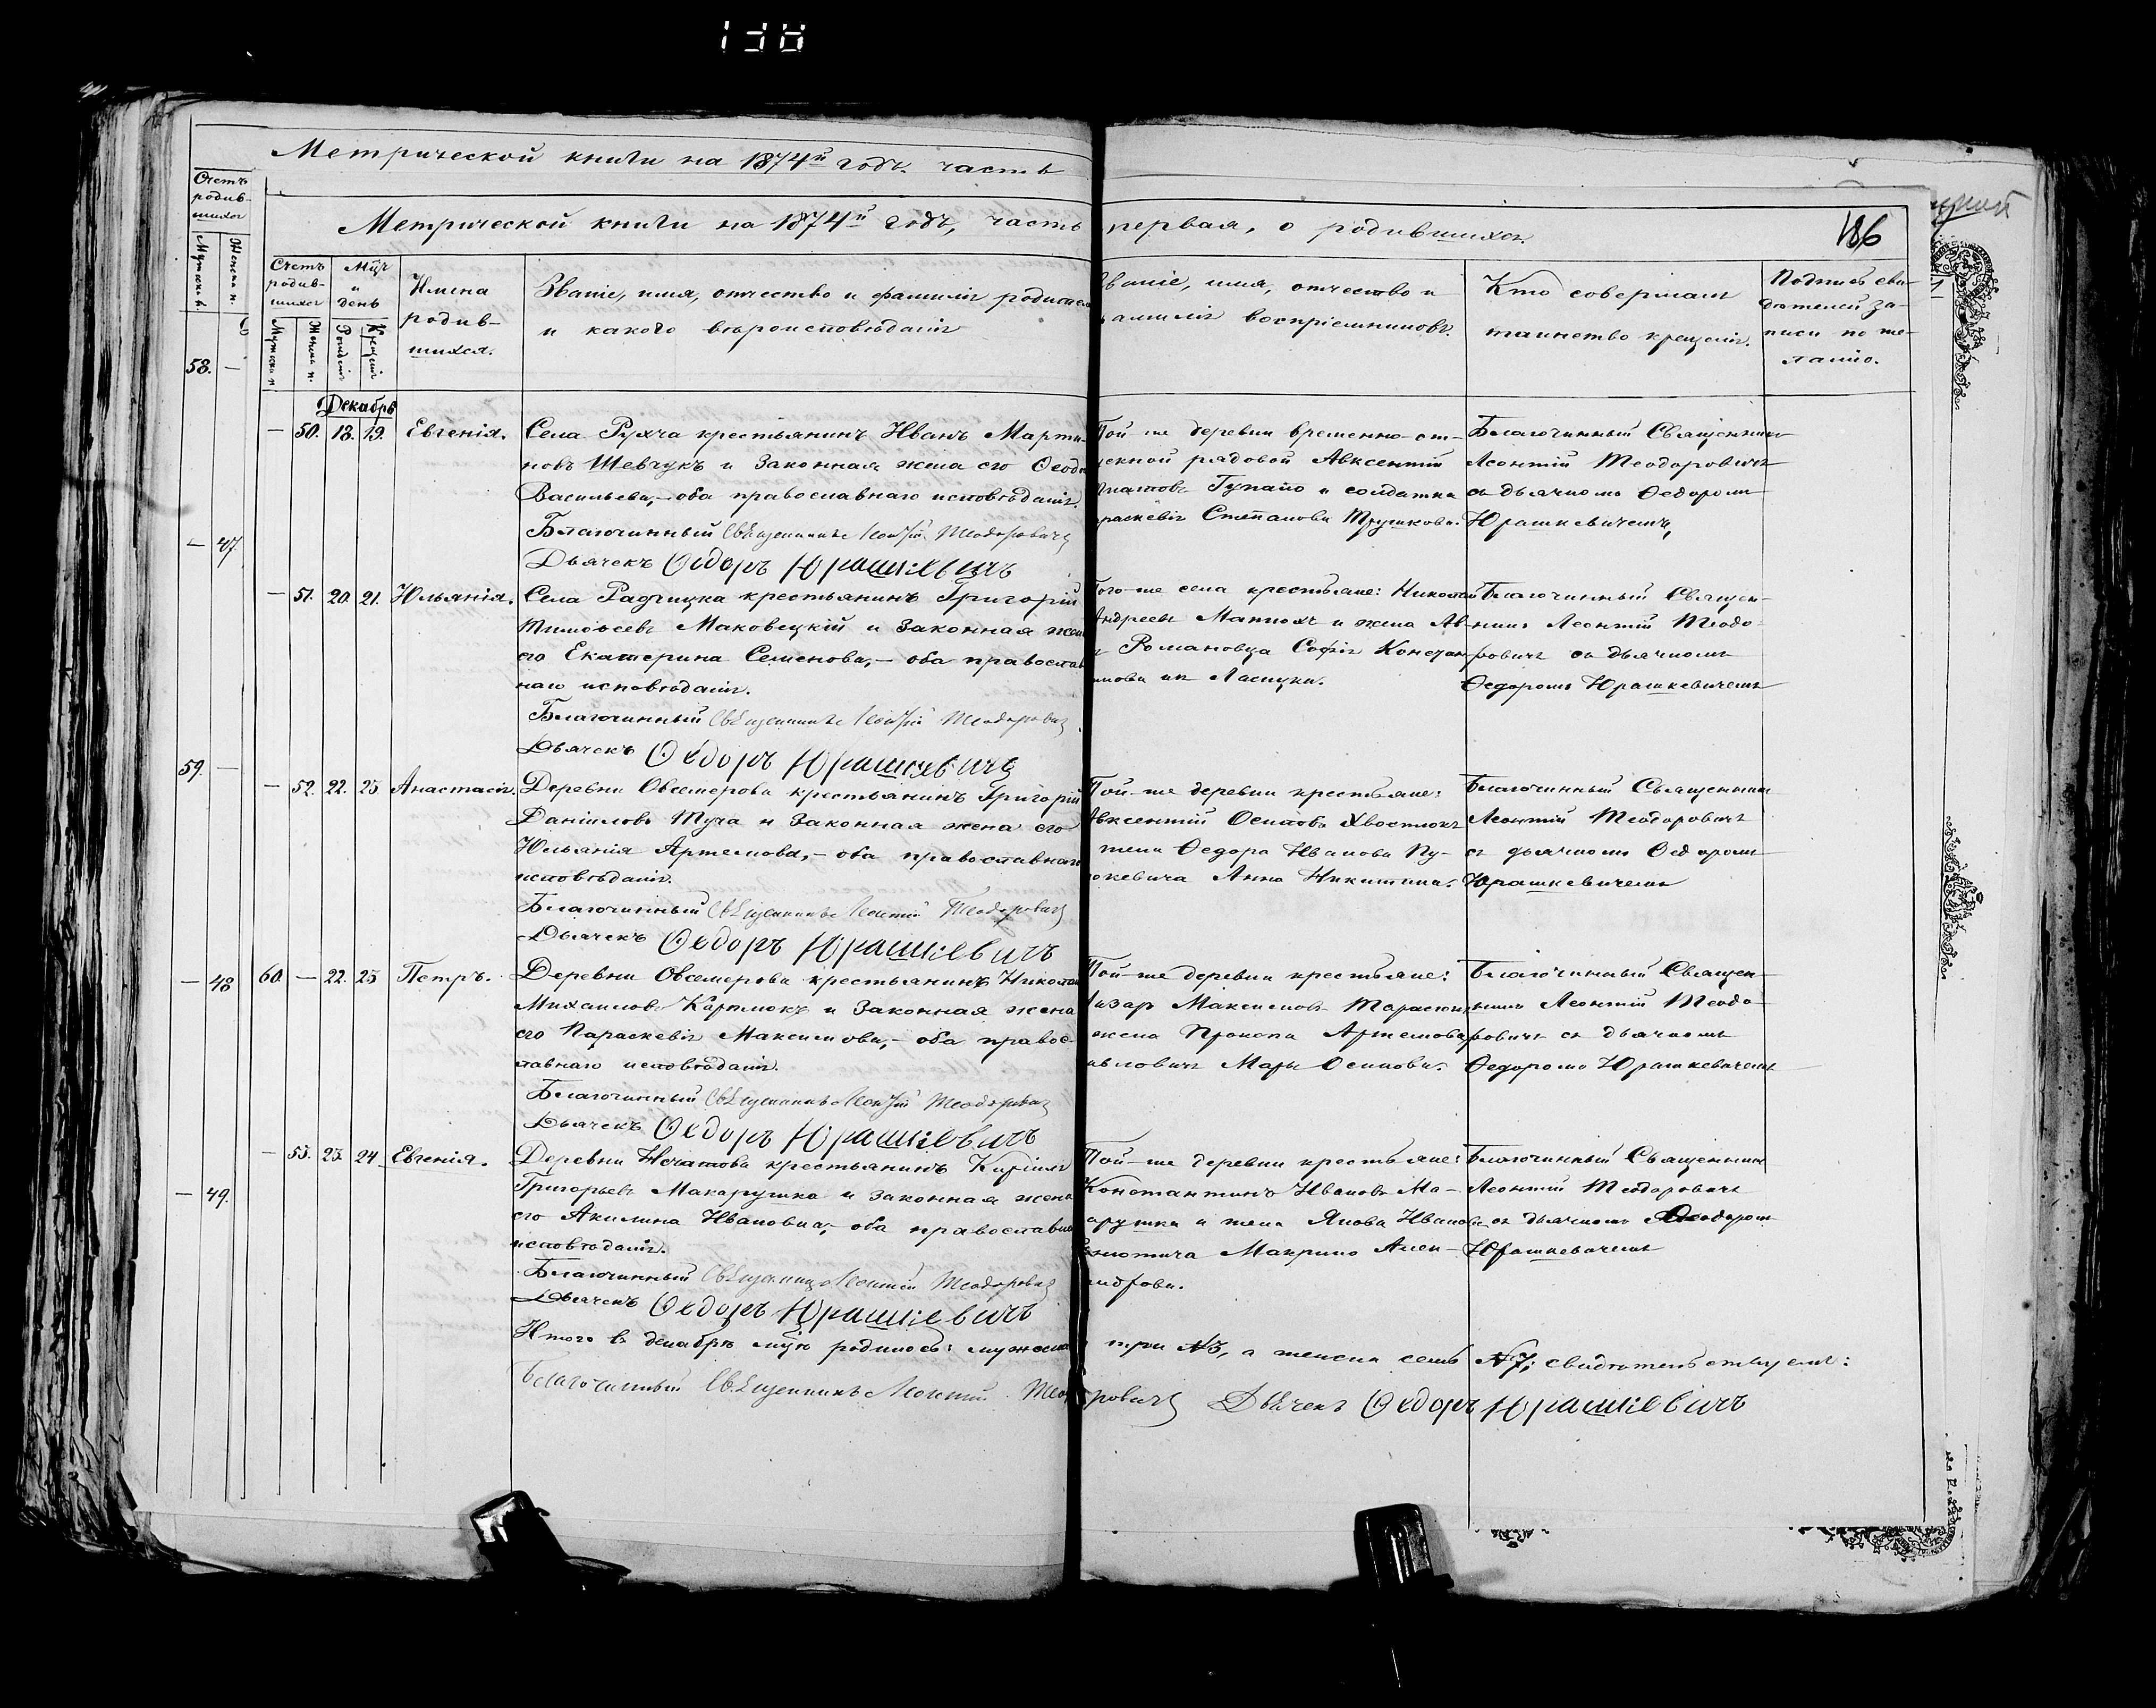 Метрической книги на 1874й годъ. часть
Счетъ
родив-
шихся
Мужеск. п.
Женск. п.
58. —
— 47.
59. —
— 48
— 49.
Метрической книги на 1874й годъ, часть первая, о родившихся.
186
Счетъ
родив-
шихся
Мцъ
и
день
Имена
родив-
шихся.
Званіе, имя, отчество и фамилія родителей
и какого вѣроисповѣданія
Званіе, имя, отчество и
фамилія воспріемниковъ.
Кто совершалъ
таинство крещенія.
Подпись сви-
дѣтелей за-
писи по же-
ланію.
Мужеск. п.
Женск. п.
Рожденія
Крещенія
Декабрь
— 50. 18. 19. Евгенія.
Села Рухча крестьянинъ Иванъ Марти-
новъ Шевчукъ и законная жена его Ѳеод
Васильева, – оба православнаго исповѣданія.
Благочинный Священникъ Леонтій Теодоровичъ
Дьячекъ Ѳедоръ Юрашкевичъ
Той-же деревни временно-от-
ускной рядовой Авксентій
Игнатовъ и солдатка
араскевія Степанова Трушкова.
Благочинный Священникъ
Леонтій Теодоровичъ
съ дьячкомъ Ѳедоромъ
Юрашкевичемъ,
— 51. 20. 21. Юльянія.
Села Радчицка крестьянинъ Григорій
Тимоѳеевъ Маковецкій и законная жена
его Екатерина Семенова, – оба православ
наго исповѣданія.
Благочинный Священникъ Леонтій Теодоровичъ
Дьячекъ Ѳедоръ Юрашкевичъ
Того-же села крестьяне: Николай
Андреевъ и жена Ав-
Романовца Софія Констан
тинова
Благочинный Священ-
никъ Леонтій Теодо-
ровичъ съ дьячкомъ
Ѳедоромъ Юрашкевичемъ
— 52. 22. 23 Анастасія.
Деревни Овсемерова крестьянинъ Григорій
Даніиловъ Туча и законная жена его
Юльянія Артемова, – оба православнаго
исповѣданія.
Благочинный Священникъ Леонтій Теодоровичъ
Дьячекъ Ѳедоръ Юрашкевичъ
Той-же деревни крестьяне:
Авксентій Осиповъ Хвостюкъ
жена Ѳедора Иванова Пу-
кевича Анна Никитина.
Благочинный Священникъ
Леонтій Теодоровичъ
съ дьячкомъ Ѳедоромъ
Юрашкевичемъ
60. — 22. 23 Петръ.
Деревни Овсемерова крестьянинъ Николай
Михаиловъ Картюкъ и законная жена
его Параскевія Максимова, – оба правос-
лавнаго исповѣданія.
Благочинный Священникъ Леонтій Теодоровичъ
Дьячекъ Ѳедоръ Юрашкевичъ
Той-же деревни крестьяне:
Лазарь Максимовъ Тарасюкъ
жена Прокопа Артемова
авловичъ Марья Осипова.
Благочинный Священ-
никъ Леонтій Теодо-
ровичъ съ дьячкомъ
Ѳедоромъ Юрашкевичемъ
— 53. 23. 24. Евгенія.
Деревни Нечатова крестьянинъ Кирилъ
Григорьевъ Макарушка и законная жена
его Акилина Ивановна, – оба православна
исповѣданія.
Благочинный Священникъ Леонтій Теодоровичъ
Дьячекъ Ѳедоръ Юрашкевичъ
Той-же деревни крестьяне:
Константинъ Ивановъ Ма-
карушка и жена Якова Иванова
Макрина Алек-
андрова.
Благочинный Священникъ
Леонтій Теодоровичъ
съ дьячкомъ Ѳеодоромъ
Юрашкевичемъ
Итого въ декабрѣ мцѣ родилось: мужеска три №3, а женска семь №7; свидѣтельствуемъ:
Благочинный Священникъ Леонтій Теодоровичъ Дьячекъ Ѳедоръ Юрашкевичъ